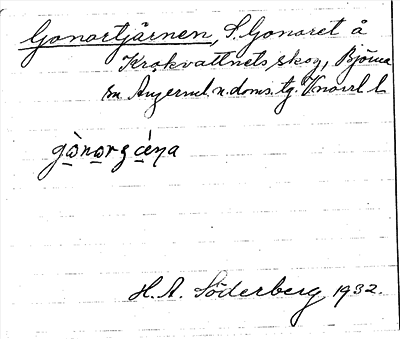 Gonartjärnen, S. Gonaret å
Krokvattnets skog, Björna
sn Ångerml. n. doms. tg. Vnorrl l.
gònargćéna
H. A. Söderberg 1932.